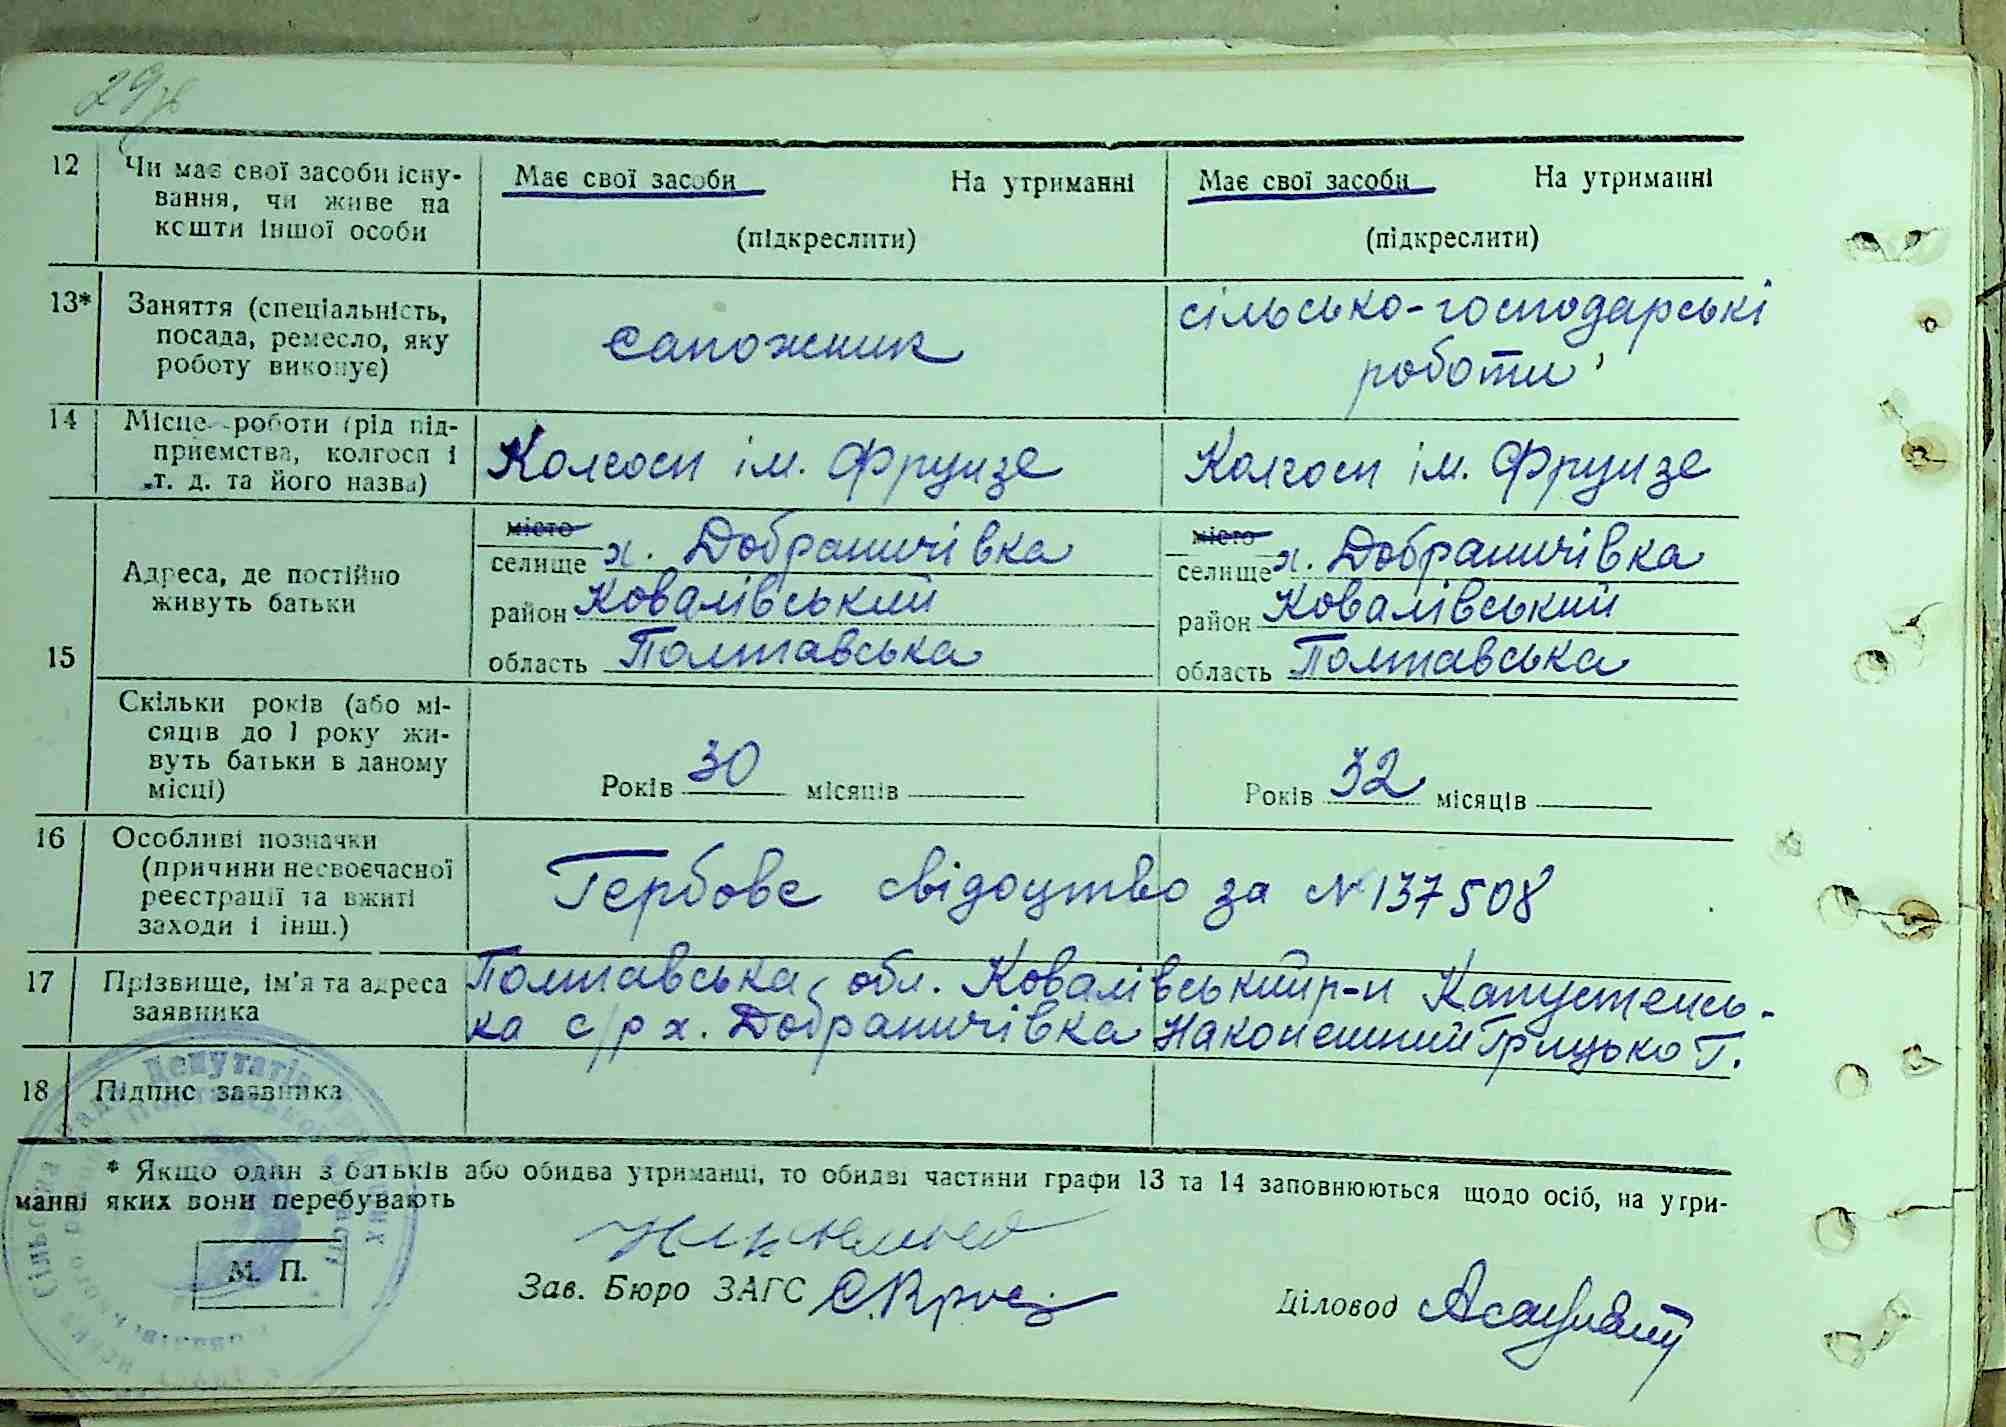 29зв
12 Чи має свої засоби існу-
вання, чи живе на
кошти іншої особи
Має свої засоби На утриманні
(підкреслити)
Має свої засоби На утриманні
(підкреслити)
13* Заняття (спеціальність,
посада, ремесло, яку
роботу виконує)
сапожник
сільсько-господарські
роботи
14 Місце роботи (рід під-
приємства, колгосп і
т. д. та його назва)
Колгосп ім. Фрунзе
Колгосп ім. Фрунзе
15
Адреса, де постійно
живуть батьки
місто
селище х. Добраничівка
район Ковалівський
область Полтавська
місто
селище х. Добраничівка
район Ковалівський
область Полтавська
Скільки років (або мі-
сяців до 1 року жи-
вуть батьки в даному
місці)
Років 30 місяців
Років 32 місяців
16 Особливі позначки
(причини несвоєчасної
реєстрації та вжиті
заходи і інш.)
Гербове свідоцтво за № 137508
17 Прізвище, ім'я та адреса
заявника
Полтавська обл. Ковалівський р-н Капустенсь-
ка с/р х. Добраничівка Наконешний Грицько Г.
18 Підпис заявника
* Якщо один з батьків або обидва утриманці, то обидві частини графи 13 та 14 заповнюються щодо осіб, на утри-
манні яких вони перебувають
М. П.
Зав. Бюро ЗАГС
Діловод
Депутатів